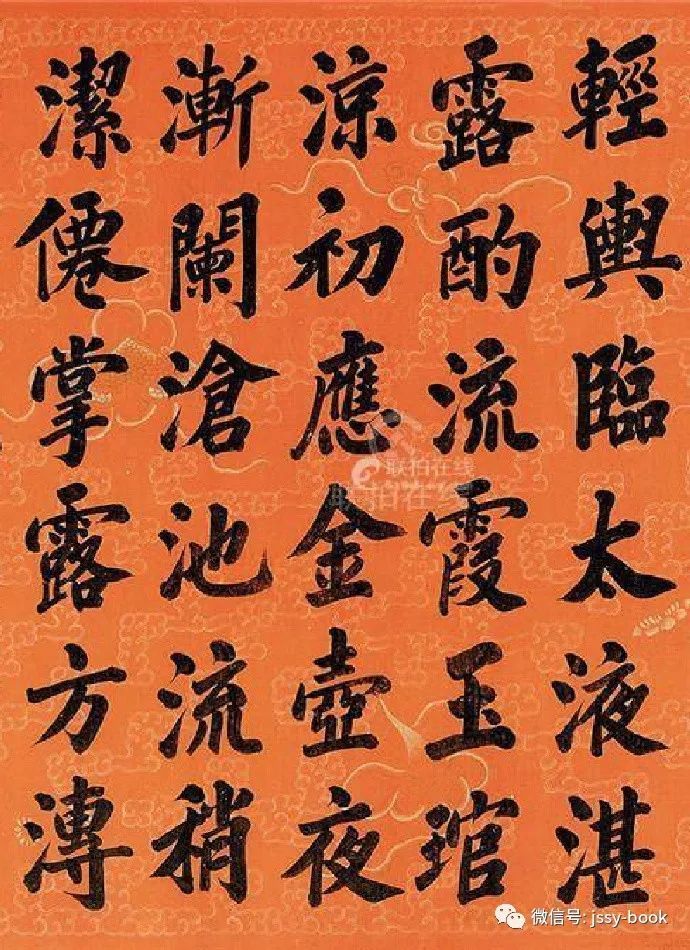 輕輿臨太液湛
露酌流霞玉琯
涼初應金壺夜
漸闌滄池流稍
潔僊掌露方漙
联拍在线
联拍在线
微信号: jssy-book